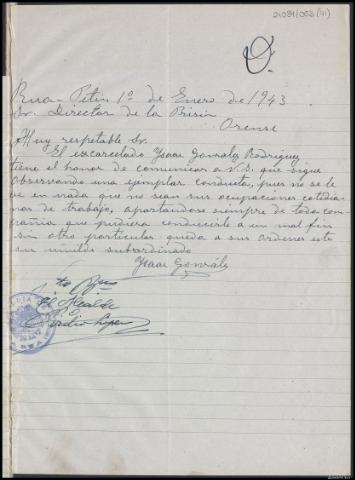 21091/003(41)
Rua-Petin 1º de Enero de 1943
Sr. Director de la Prisión
Orense
Muy respetable Sr.
El excarcelado Ysaac Gonzalez Rodriguez,
tiene el honor de comunicar a V.S. que sigue
observando una ejemplar conducta, pues no se le
ve en nada que no sean sus ocupaciones cotidia-
nas de trabajo, apartandose siempre de toda com-
pañia que pudiera conducirle a un mal fin
Sin otro particular queda a sus ordenes este
su umilde subordinado
Ysaac Gonzalez
Vto Bno
El Alcalde